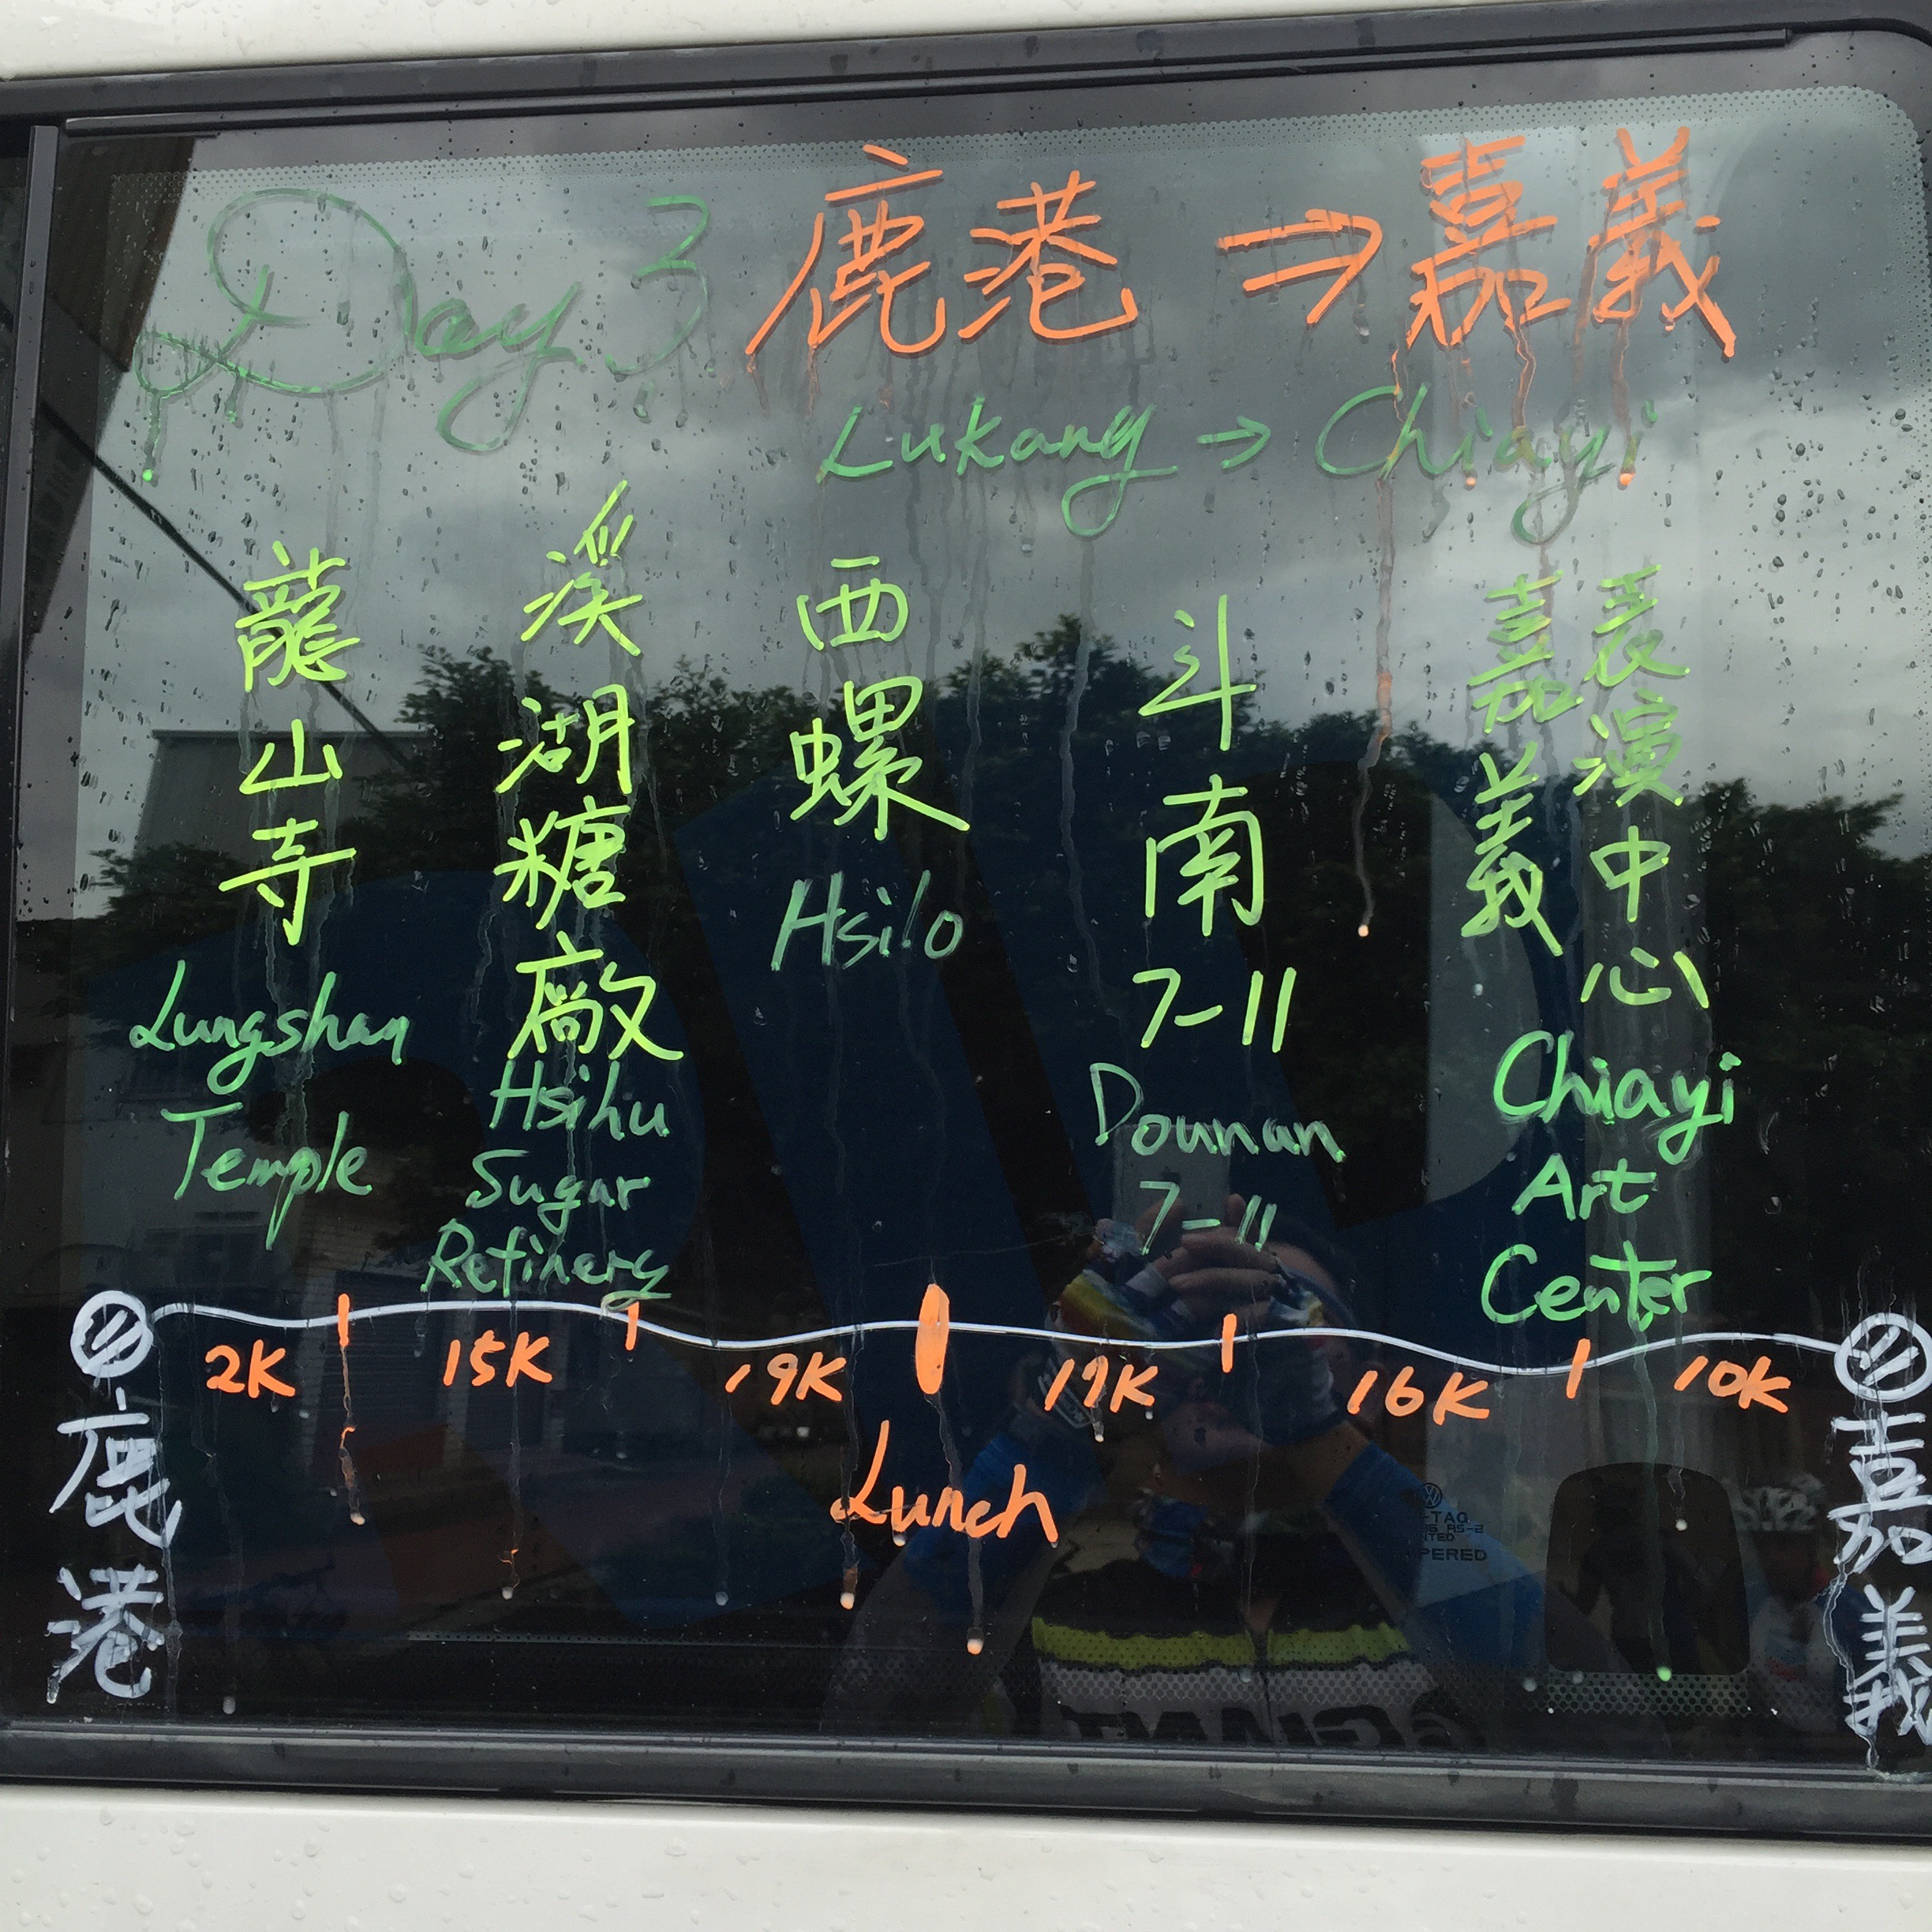 Day 3 鹿港 → 嘉義
Lukang → Chiayi
龍山寺
Lungshan
Temple
溪湖糖廠
Hsihu
Sugar
Refinery
西螺
Hsilo
斗南
7-11
Dounan
7-11
嘉義
表演中心
Chiayi
Art
Center
2K
15K
19K
17K
16K
10K
Lunch
鹿港
嘉義
GIANT